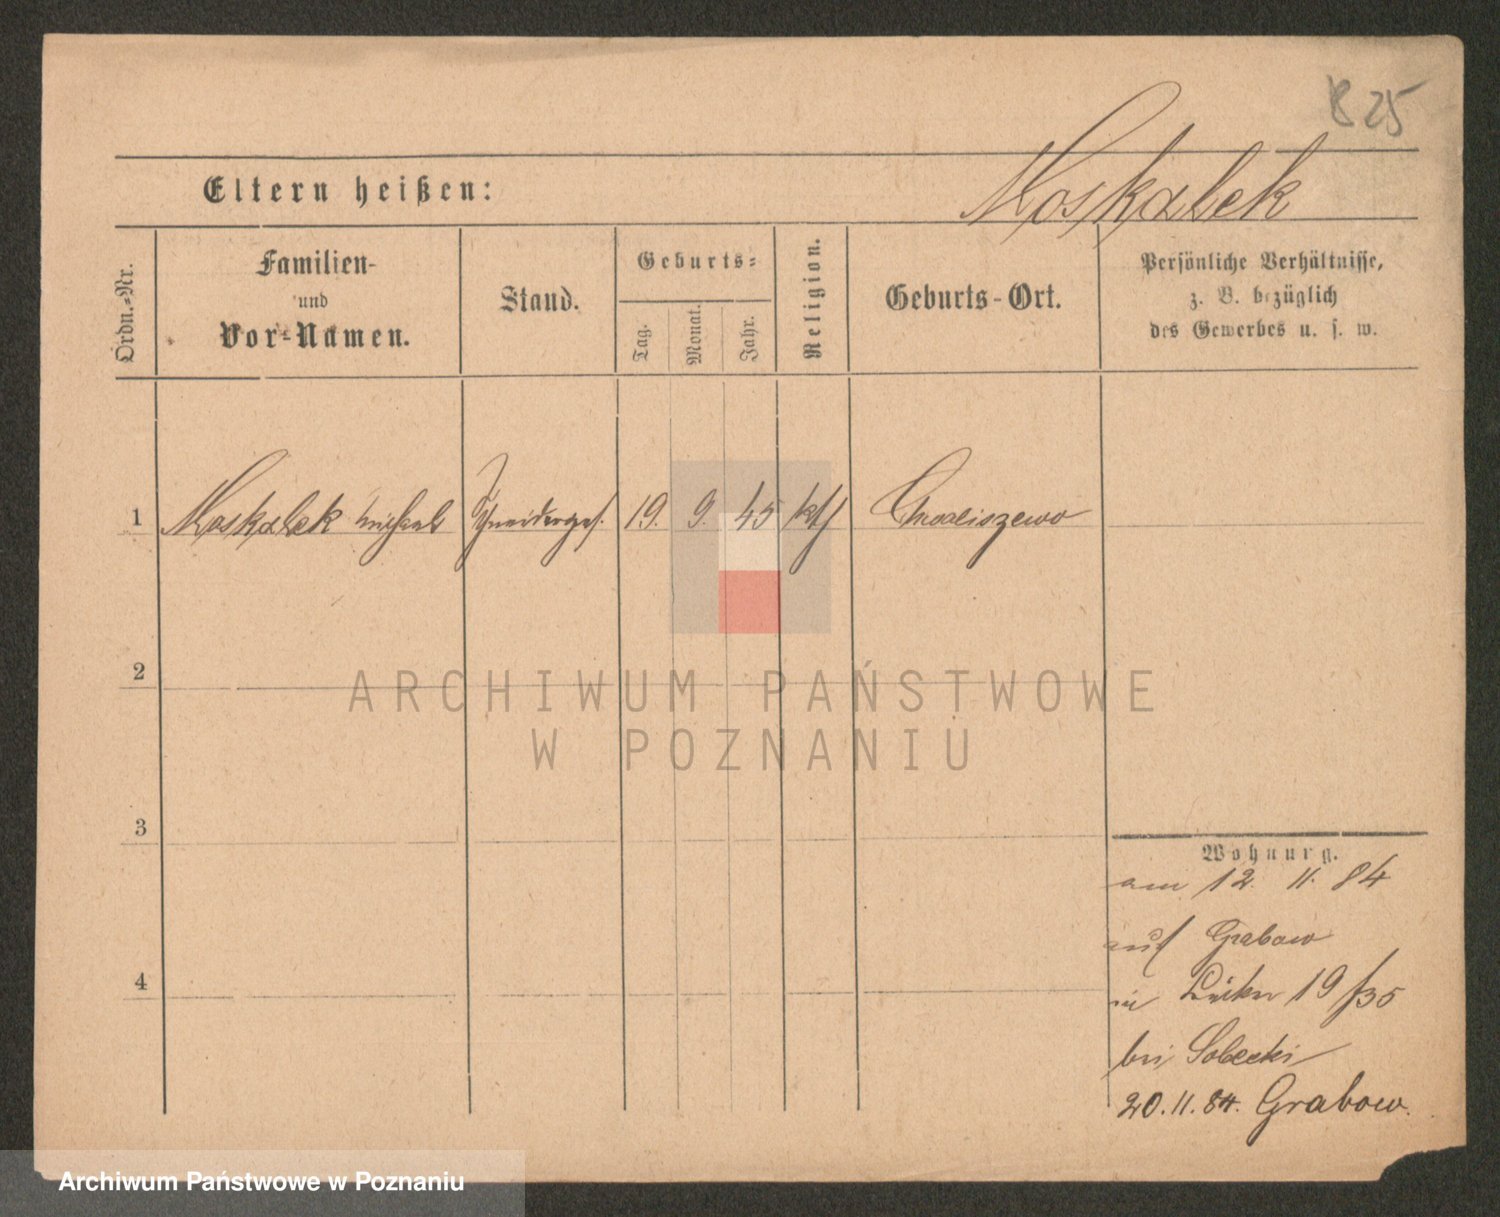 B 25
Eltern heißen:
Moskalek
Ordn.-Nr.
Familien-
und
Vor-Namen.
Stand.
Geburts-
Tag.
Monat.
Jahr.
Religion.
Geburts-Ort.
Persönliche Verhältnisse,
z. B. bezüglich
des Gewerbes u. s. w.
1 Moskalek Michael Schneiderges. 19. 9. 45 kth Chwaliszewo
2
ARCHIWUM PAŃSTWOWE
W POZNANIU
3
Wohnung.
am 12. 11. 84
auf Grabow
4
in 19/35
bei Sobecki
20.11.84. Grabow.
Archiwum Państwowe w Poznaniu